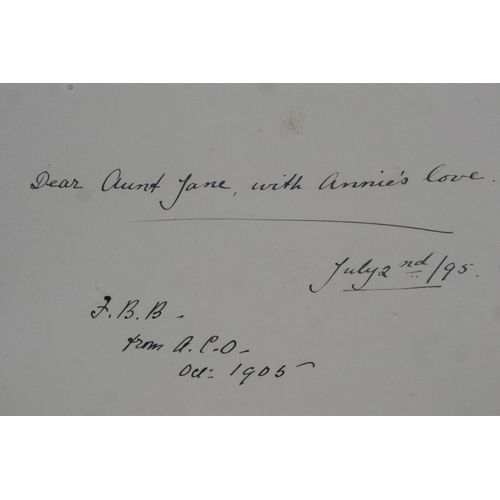 Dear Aunt Jane, with Annie's love.
July 2nd/95.
F.B.B-
from A.C.O-
Oct: 1905